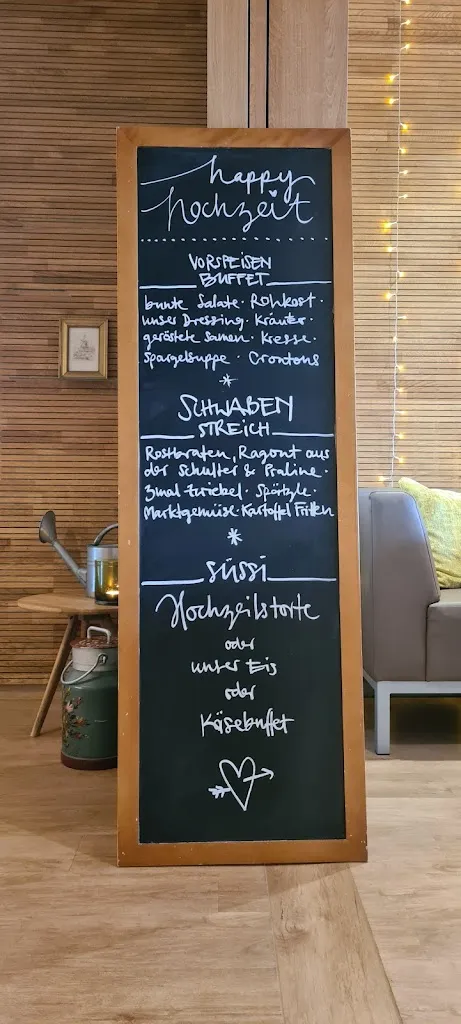 happy
hochzeit
VORSPEISEN
BUFFET
bunte Salate · Rohkost ·
unser Dressing · Kräuter ·
geröstete Samen · Kresse ·
Spargelsuppe · Croutons
SCHWABEN
STREICH
Rostbraten, Ragout aus
der Schulter & Praline ·
3mal Zwiebel · Spätzle ·
Marktgemüse · Kartoffel Fritten
SÜSSI
Hochzeitstorte
oder
unser Eis
oder
Käsebuffet